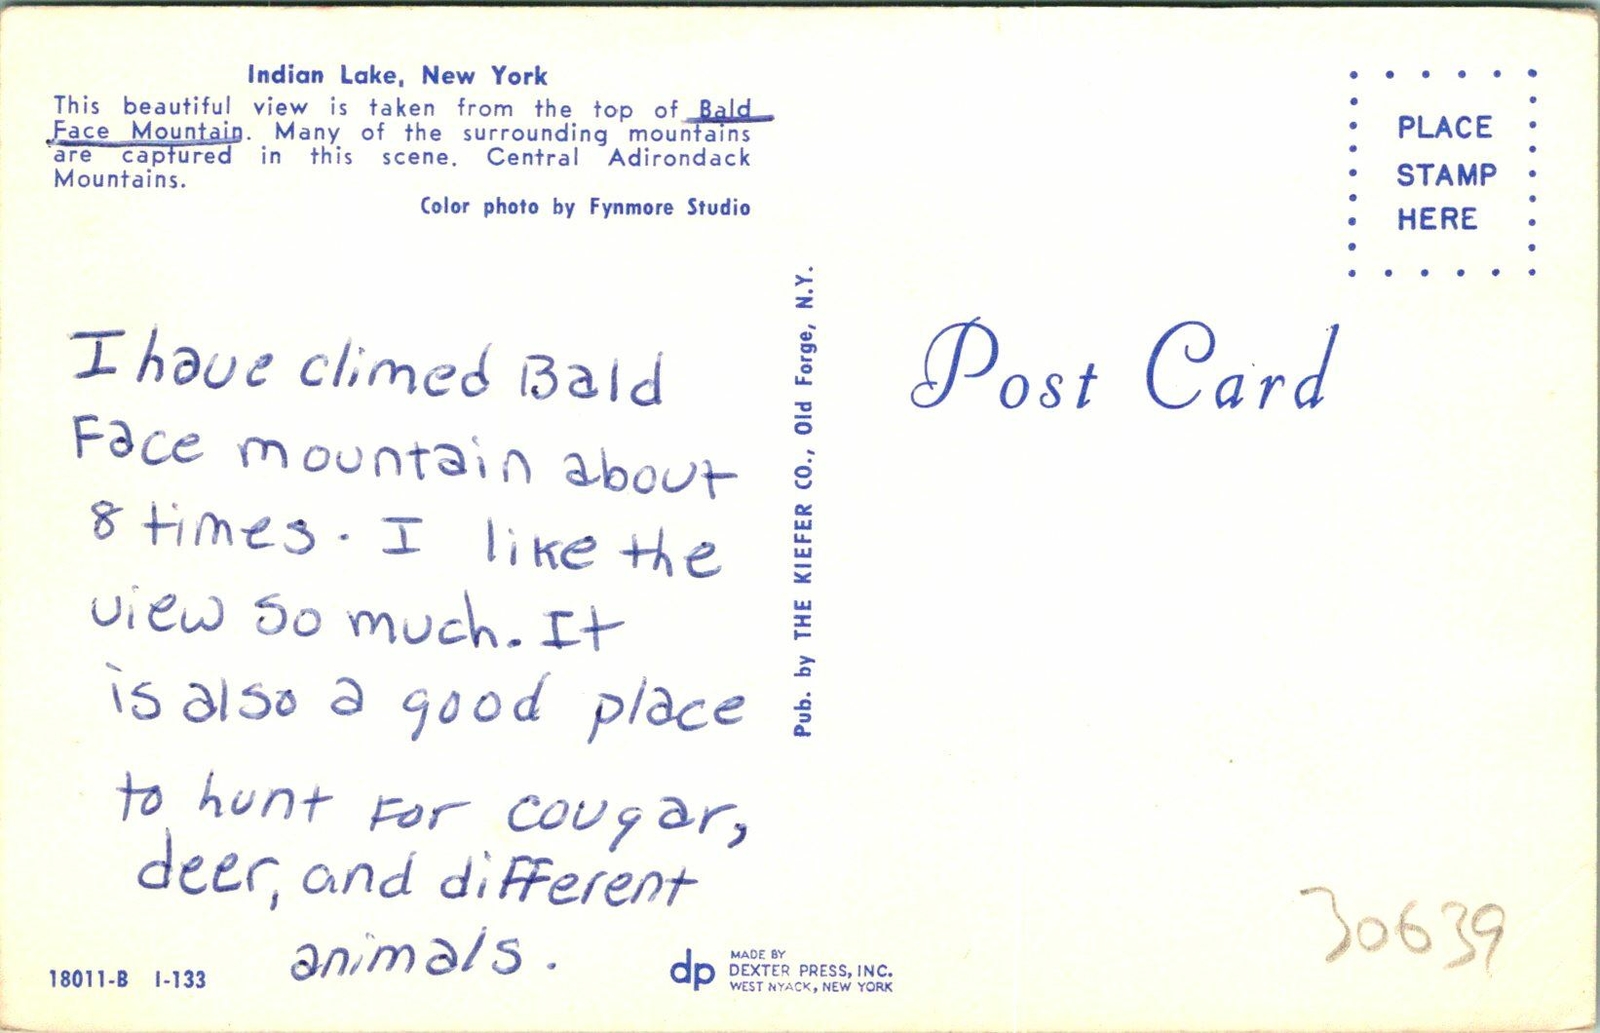 Indian Lake, New York
This beautiful view is taken from the top of Bald
Face Mountain. Many of the surrounding mountains
are captured in this scene. Central Adirondack
Mountains.
Color photo by Fynmore Studio
I have climed Bald
Face mountain about
8 times. I like the
view so much. It
is also a good place
to hunt for cougar,
deer, and different
animals.
18011-B I-133
Pub. by THE KIEFER CO., Old Forge, N.Y.
dp
MADE BY
DEXTER PRESS, INC.
WEST NYACK, NEW YORK
PLACE
STAMP
HERE
Post Card
30639